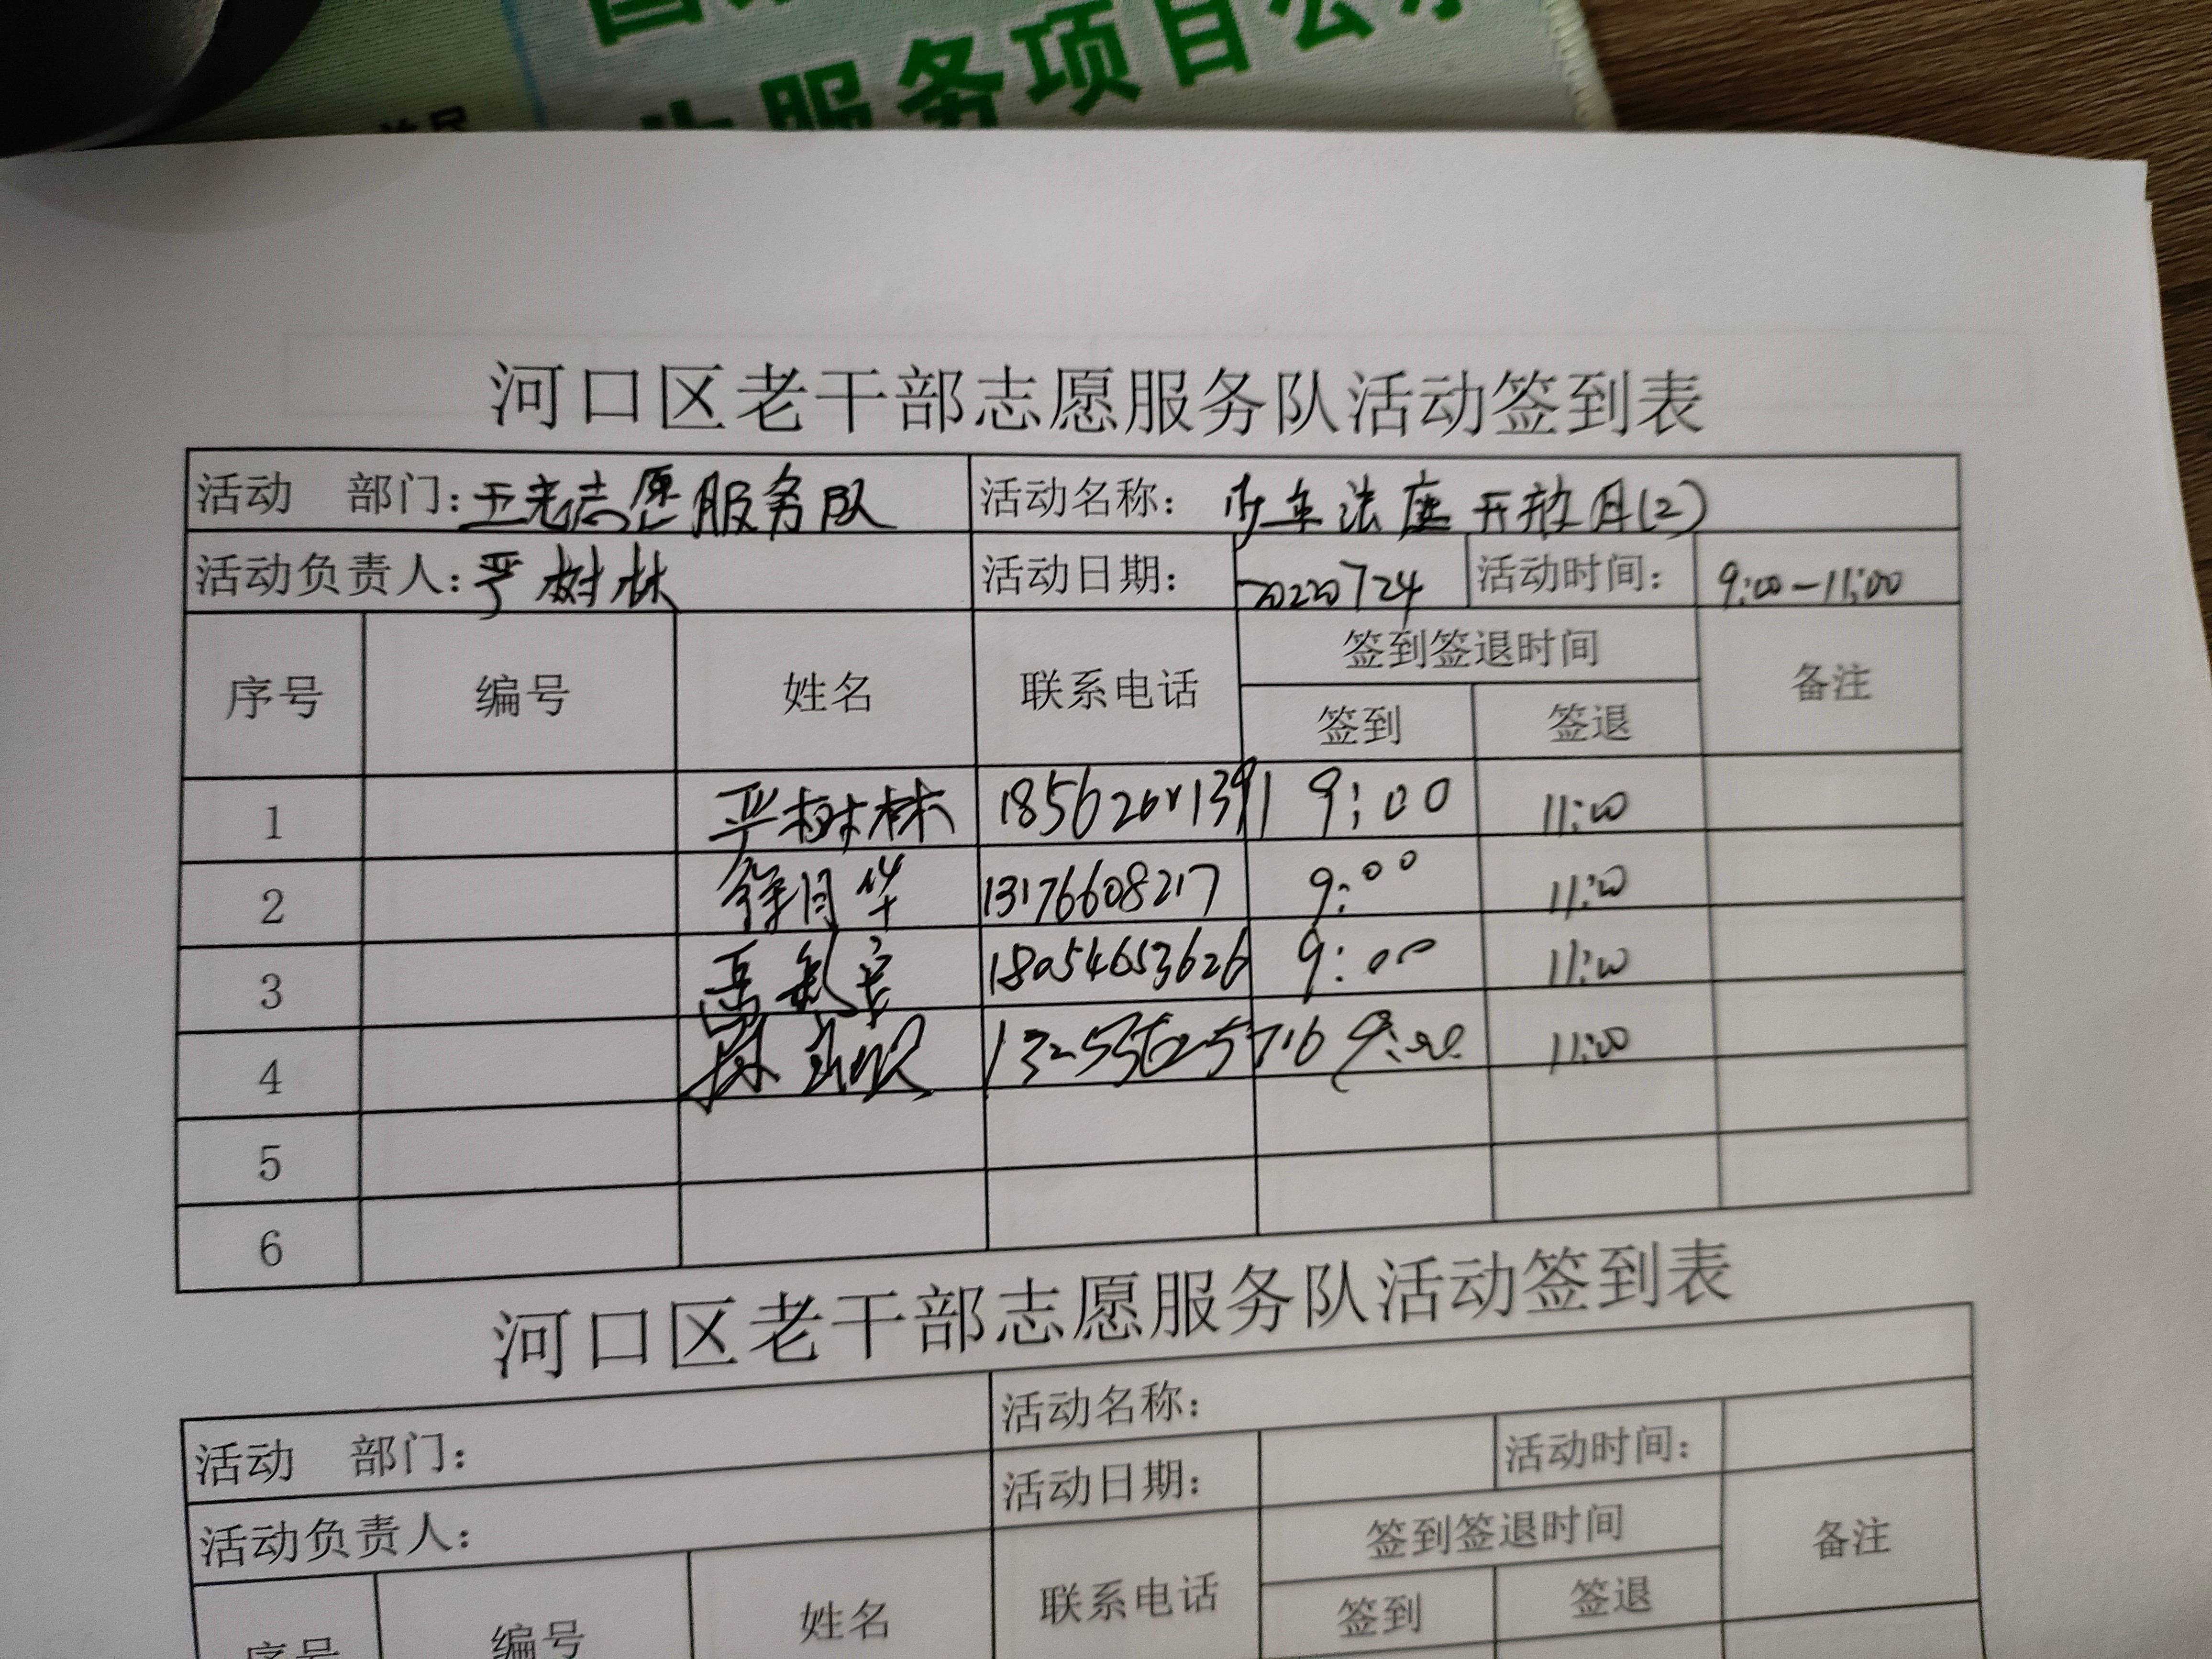 服务项目公示
河口区老干部志愿服务队活动签到表
活动 部门：五老志愿服务队 活动名称： 少年法庭开放月(2)
活动负责人：严树林 活动日期： 20220724 活动时间： 9:00-11:00
序号 编号 姓名 联系电话 签到签退时间 备注
签到 签退
1 严树林 9:00 11:00
2 徐月华 13176608217 9:00 11:00
3 18054653626 9:00 11:00
4 9:00 11:00
5
6
河口区老干部志愿服务队活动签到表
活动 部门： 活动名称：
活动负责人： 活动日期： 活动时间：
序号 编号 姓名 联系电话 签到签退时间 备注
签到 签退